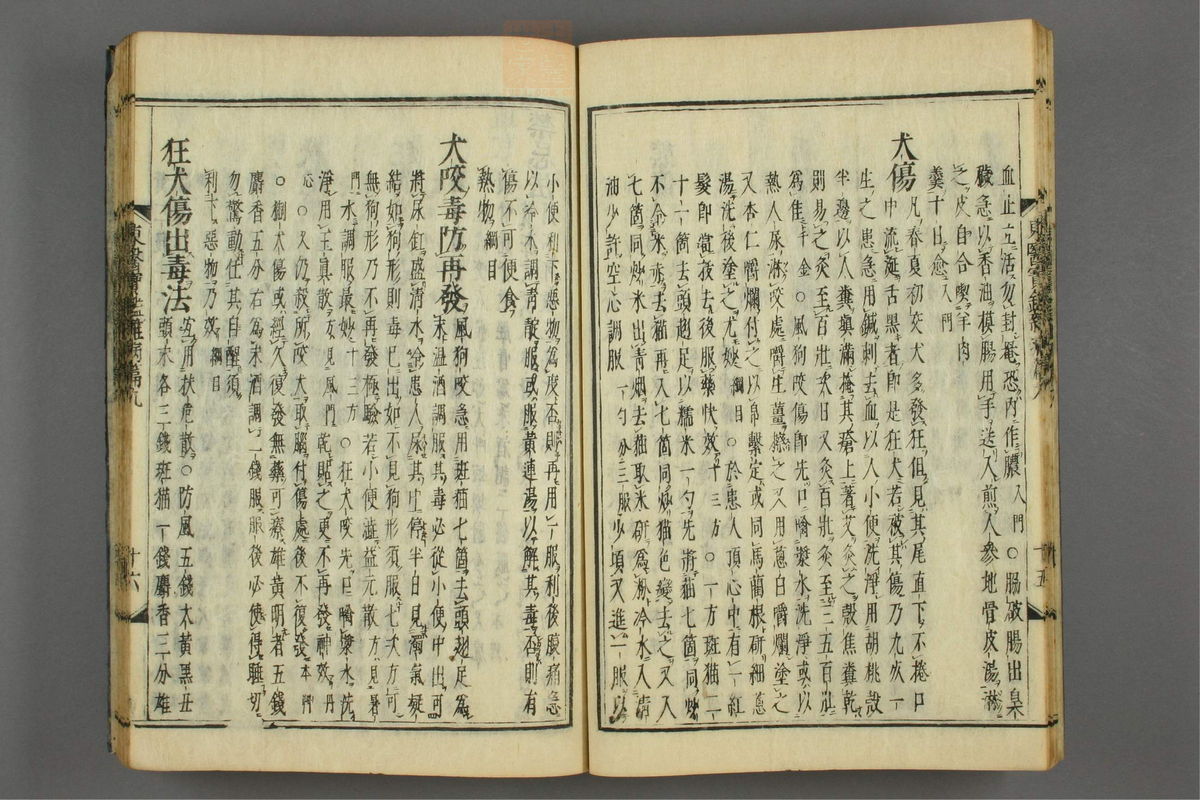 血止立活勿封罨恐內作膿入門○腸破腸出臭
穢急以香油模腸用手送入煎人參地骨皮湯淋
之皮自合喫羊肉
羹十日愈入門
犬傷
凡春夏初交犬多發狂但見其尾直下不捲口
中流涎舌黑者即是狂犬若被其傷乃九死一
生之患急用鍼刺去血以人小便洗淨用胡桃殼
半邊以人糞填滿掩其瘡上著艾灸之殼焦糞乾
則易之灸至百壯次日又灸百壯灸至三五百壯
爲佳千金○風狗咬傷即先口噙漿水洗淨或以
熱人尿淋咬處嚼生薑擦之又用葱白嚼爛塗之
又杏仁嚼爛付之以帛繫定或同馬藺根硏細葱
湯洗後塗之尤妙綱目○於患人頂心中有一紅
髮即當拔去後服藥快效十三方○一方斑猫二
十一箇去頭翅足以糯米一勺先將猫七箇同炒
不令米赤去猫再入七箇同炒猫色變去之又入
七箇同炒米出靑烟去猫取米硏爲粉冷水入淸
油少許空心調服一勺分三服少頃又進一服以
東醫寶鑑雜病篇九
十五
小便利下惡物爲度否則再用一服利後腹痛急
以冷水調靑靛服或服黃連湯以解其毒否則有
傷不可便食
熱物綱目
犬咬毒防再發
風狗咬急用斑猫七箇去頭翅足爲
末溫酒調服其毒必從小便中出可
將尿缸盛淸水令患人尿其中停半日見濁氣凝
結如狗形則毒已出如不見狗形須服七次方可
無狗形乃不再發極驗若小便澁益元散方見暑
門水調服最妙十三方○狂犬咬先口噙漿水洗
淨用玉眞散方見風門乾貼之更不再發神效丹
心○又仍殺所咬犬取腦付傷處後不復發本門
○猘犬傷或經久復發無藥可療雄黃明者五錢
麝香五分右爲末酒調二錢服服後必使得睡切
勿驚動任其自醒須
利下惡物乃效綱目
狂犬傷出毒法
宜用扶危散○防風五錢大黃黑丑
頭末各三錢斑猫一錢麝香三分雄
東醫寶鑑雜病篇九
十六